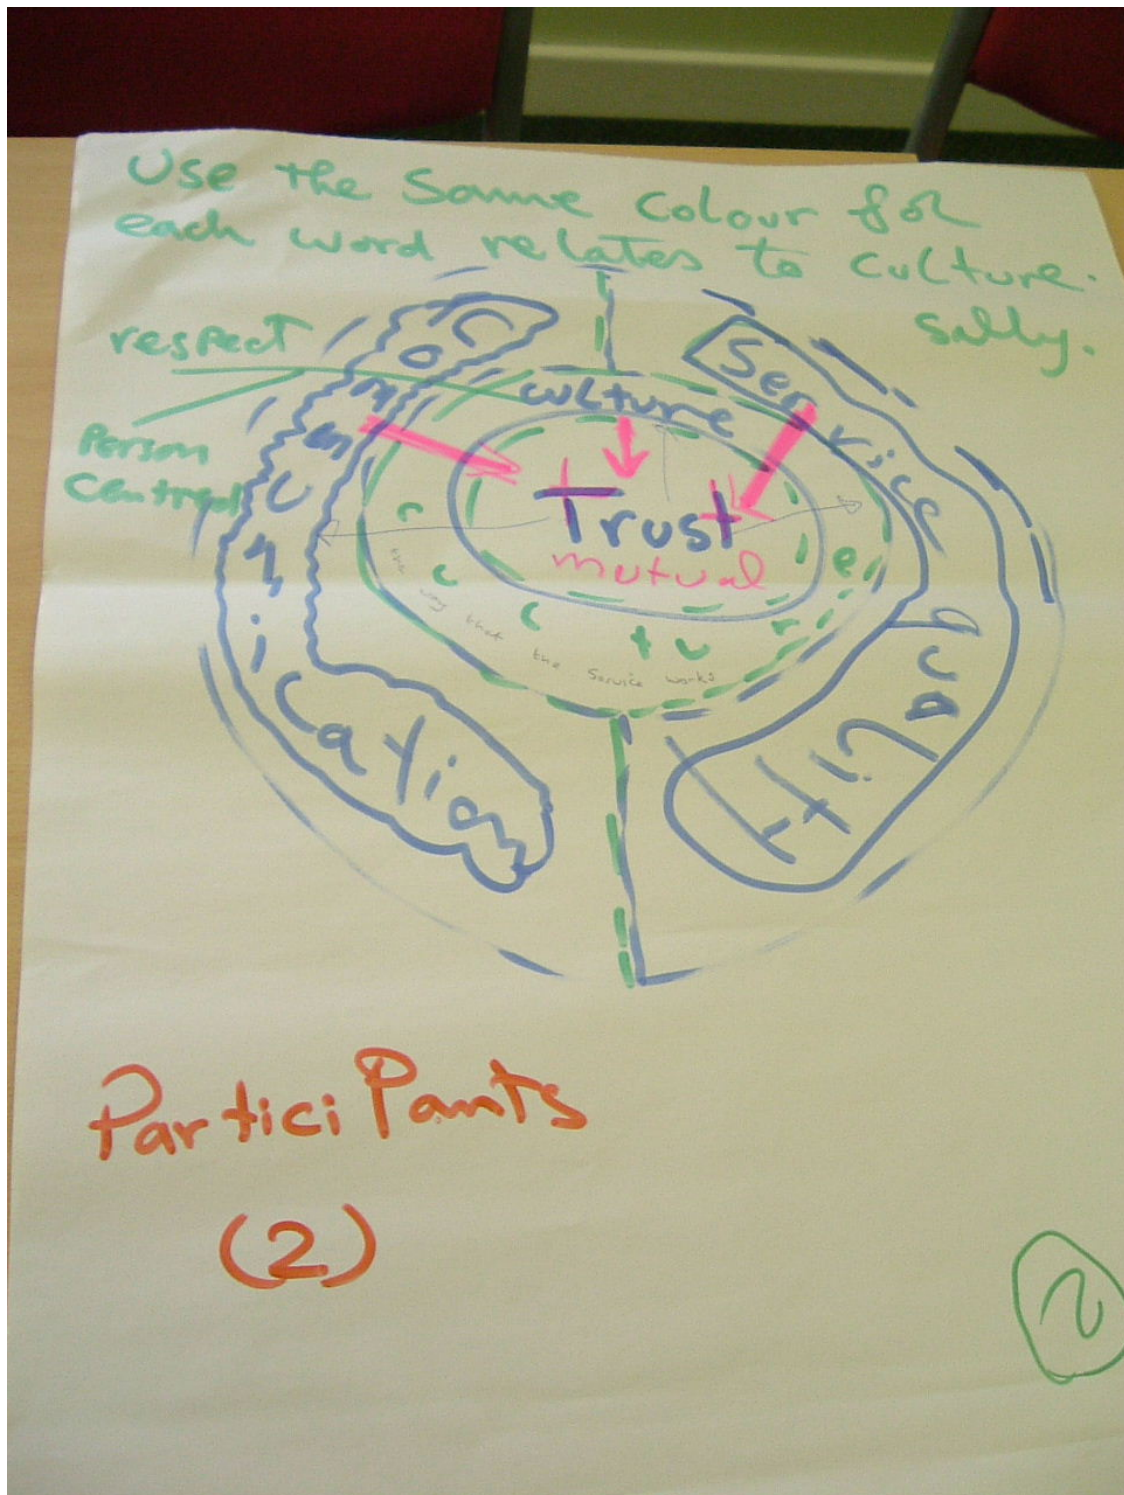 Use the Same Colour for
each word relates to culture.
Sally.
respect
Person
Centred
Communication
Service quality
culture
Trust
mutual
culture
the way that the Service works
ParticiPants
(2)
2